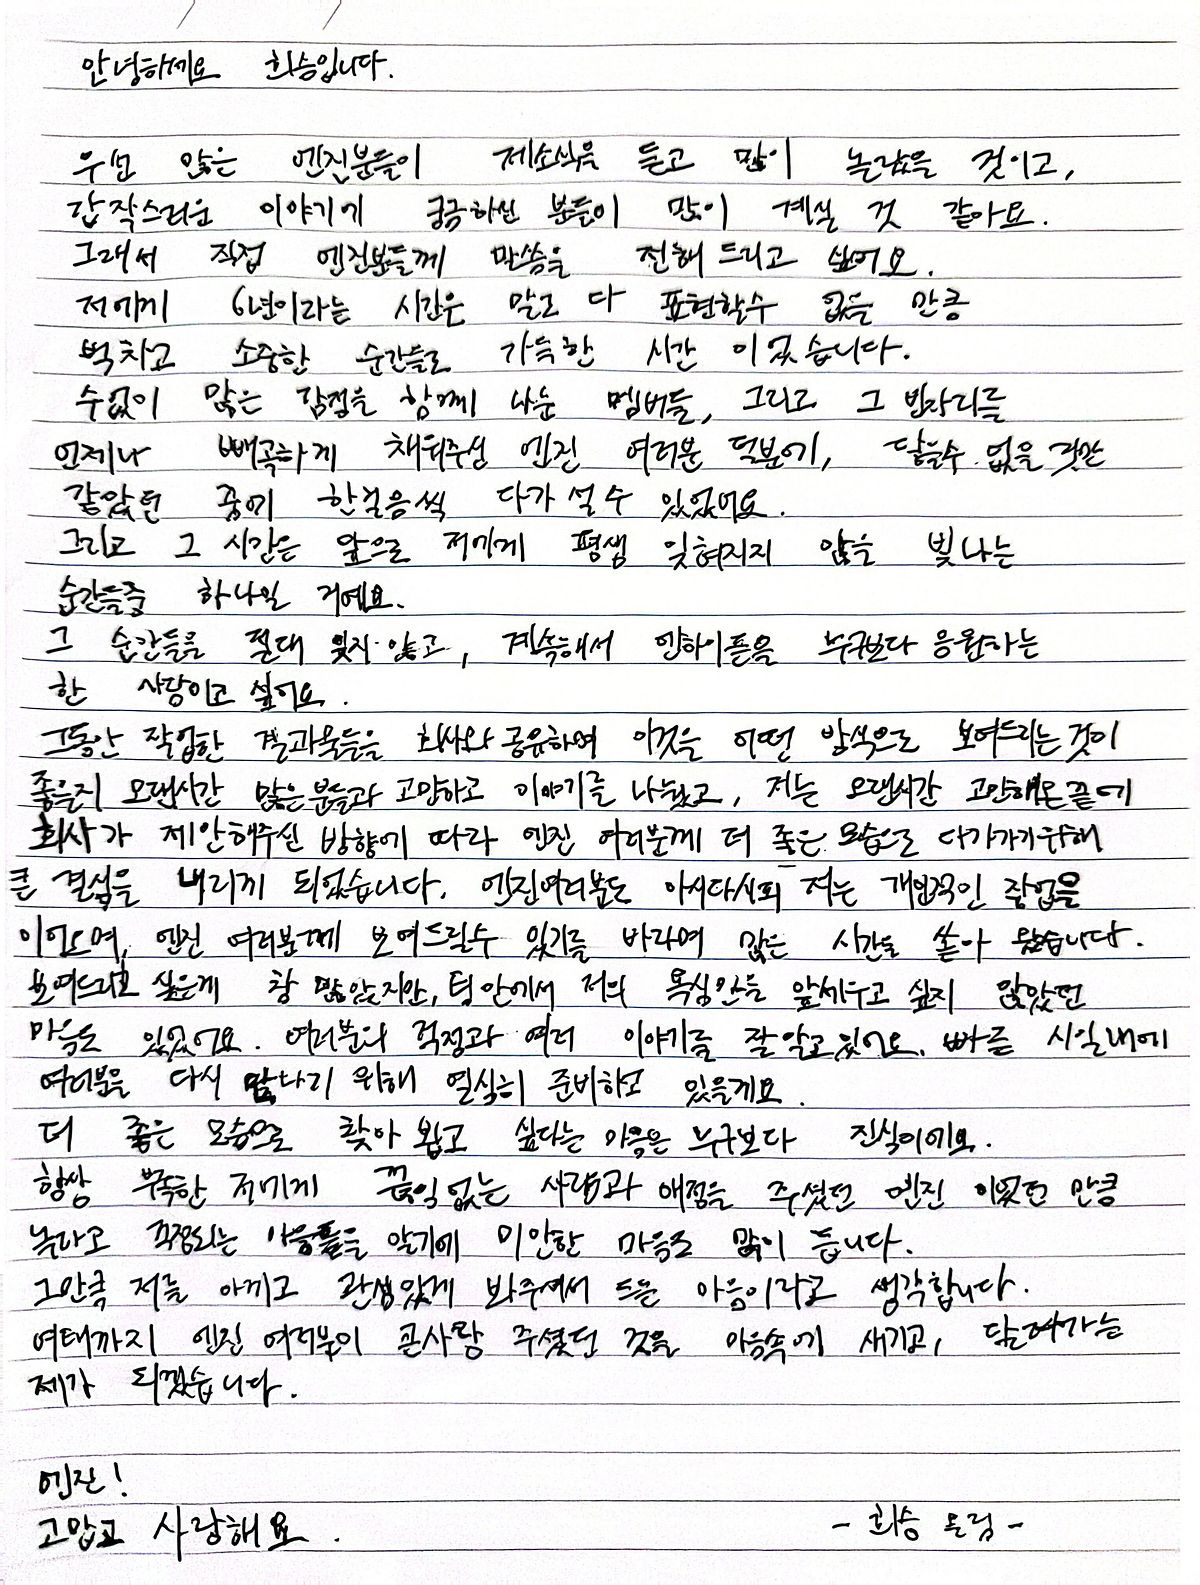 안녕하세요 희승입니다.
우선 많은 엔진분들이 제소식을 듣고 많이 놀랐을 것이고,
갑작스러운 이야기에 궁금하신 분들이 많이 계실 것 같아요.
그래서 직접 엔진분들께 말씀을 전해 드리고 싶어요.
저에게 6년이라는 시간은 말로 다 표현할수 없을 만큼
벅차고 소중한 순간들로 가득한 시간 이었습니다.
수없이 많은 감정을 함께 나눈 멤버들, 그리고 그 빈자리를
언제나 빼곡하게 채워주신 엔진 여러분 덕분에, 닿을수 없을 것만
같았던 꿈에 한걸음씩 다가 설 수 있었어요.
그리고 그 시간은 앞으로 저에게 평생 잊혀지지 않을 빛나는
순간들중 하나일 거예요.
그 순간들을 절대 잊지 않고, 계속해서 엔하이픈을 누구보다 응원하는
한 사람이고 싶어요.
그동안 작업한 결과물들을 회사와 공유하며 이것을 어떤 방식으로 보여드리는 것이
좋을지 오랜시간 많은분들과 고민하고 이야기를 나눴고, 저는 오랜시간 고민해온 끝에
회사가 제안해주신 방향에 따라 엔진 여러분께 더 좋은 모습으로 다가가기위해
큰 결심을 내리게 되었습니다. 엔진여러분도 아시다시피 저는 개인적인 작업을
이어오며, 엔진 여러분께 보여드릴수 있기를 바라며 많은 시간을 쏟아 왔습니다.
보여드리고 싶은게 참 많았지만, 팀 안에서 저의 욕심만을 앞세우고 싶지 않았던
마음도 있었어요. 여러분의 걱정과 여러 이야기를 잘 알고 있어요. 빠른 시일내에
여러분을 다시 만나기 위해 열심히 준비하고 있을게요.
더 좋은 모습으로 찾아 뵙고 싶다는 마음은 누구보다 진심이에요.
항상 부족한 저에게 끊임없는 사랑과 애정을 주셨던 엔진 이었던 만큼
놀라고 걱정되는 마음들을 알기에 미안한 마음도 많이 듭니다.
그만큼 저를 아끼고 관심있게 봐주셔서 드는 마음이라고 생각합니다.
여태까지 엔진 여러분이 큰사랑 주셨던 것을 마음속에 새기고, 달려가는
제가 되겠습니다.
엔진!
고맙고 사랑해요.
- 희승 드림 -